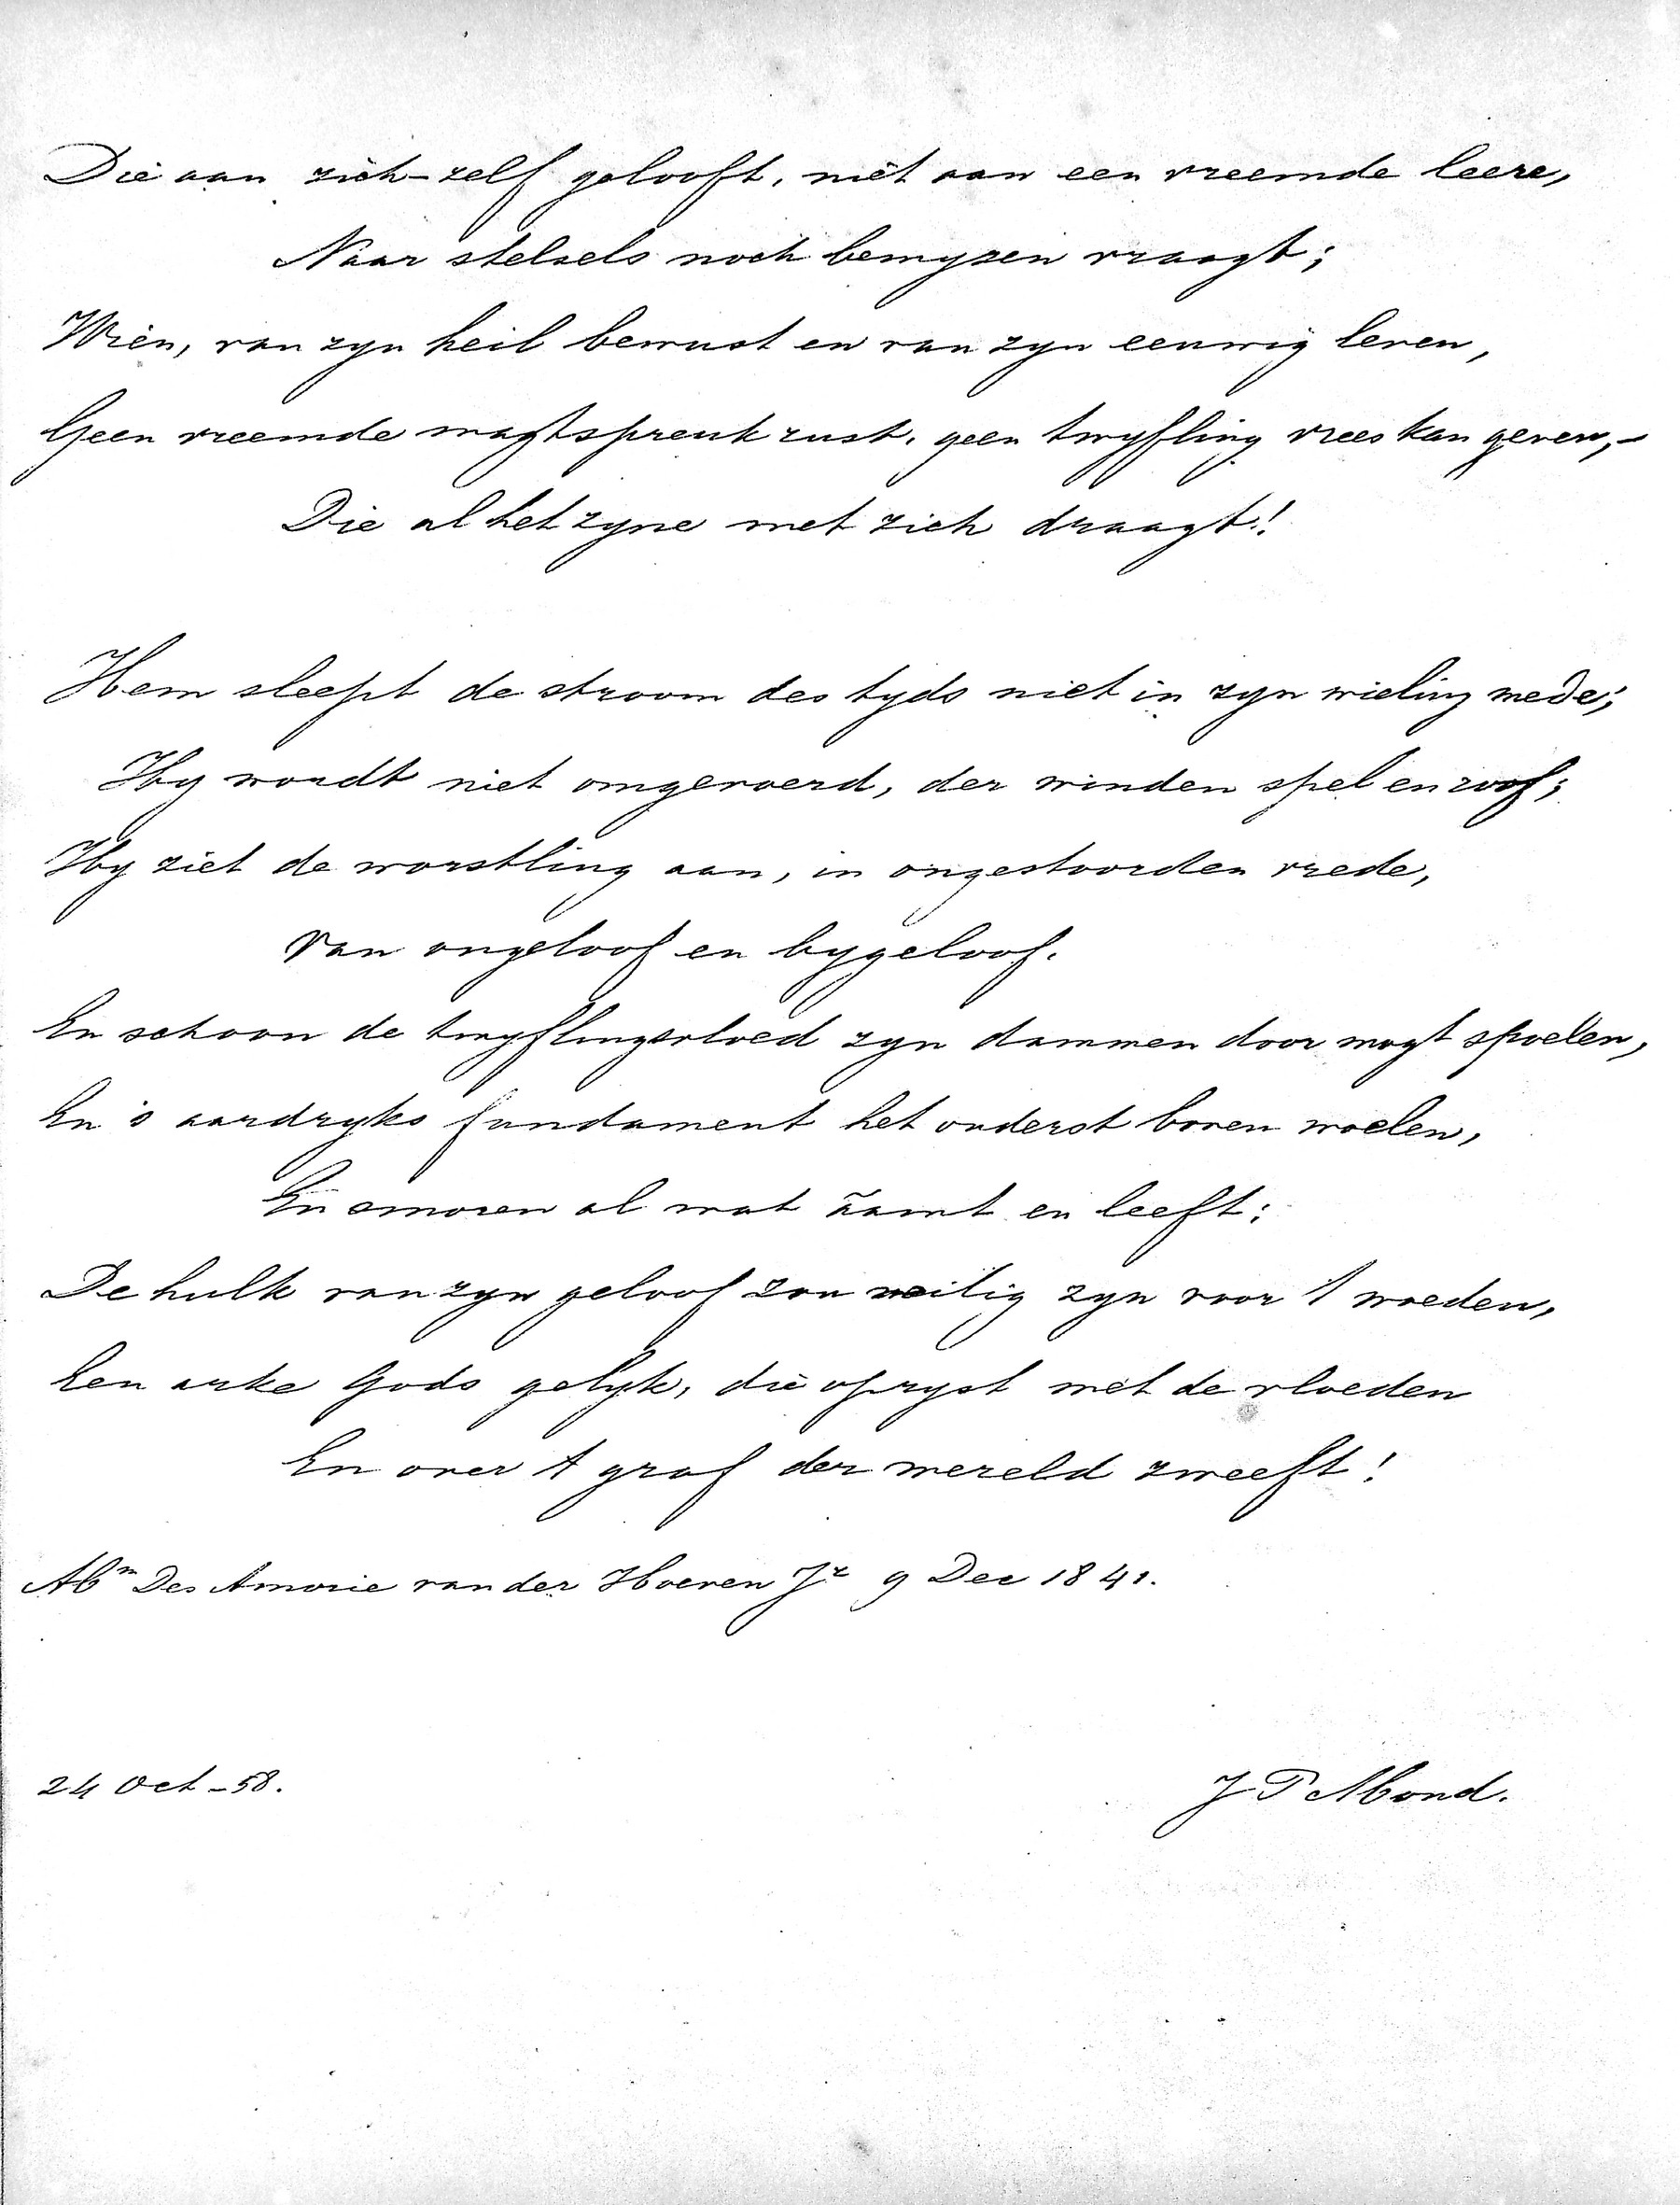 Die aan zich-zelf gelooft, niet aan een vreemde leere,
Naar stelsels noch bewyzen vraagt;
Wien, van zyn heil bewust en van zyn eeuwig leven,
Geen vreemde magtspreuk rust, geen twyfling vrees kan geven,-
Die al het zyne met zich draagt!
Hem sleept de stroom des tyds niet in zyn wieling mede;
Hy wordt niet omgevoerd, der winden spel en roof;
Hy ziet de worstling aan, in ongestoorden vrede,
Van ongeloof en bygeloof.
En schoon de twyflingsvloed zyn dammen door mogt spoelen,
En 's aardryks fundament het onderst boven woelen,
En smoren al wat äamt en leeft:
De hulk van zyn geloof zou veilig zyn voor 't woeden,
Een arke Gods gelyk, die opryst met de vloeden
En over 't graf der wereld zweeft!
Abm Des Amorie van der Hoeven Jr 9 Dec 1841.
24 Oct - 58.
J P Mond.